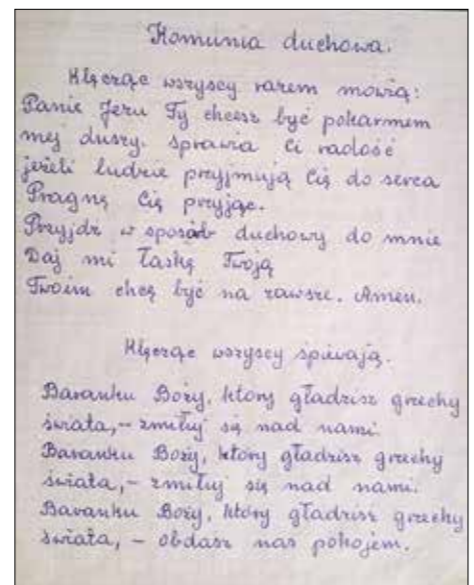 Komunia duchowa.
Klęcząc wszyscy razem mówią:
Panie Jezu Ty chcesz być pokarmem
mej duszy. Sprawia Ci radość
jeżeli ludzie przyjmują Cię do serca
Pragnę Cię przyjąc.
Przyjdź w sposób duchowy do mnie
Daj mi łaskę Twoją
Twoim chcę być na zawsze. Amen.
Klęcząc wszyscy śpiewają.
Baranku Boży, który gładzisz grzechy
świata, – zmiłuj się nad nami.
Baranku Boży, który gładzisz grzechy
świata, – zmiłuj się nad nami.
Baranku Boży, który gładzisz grzechy
świata, – obdasz nas pokojem.